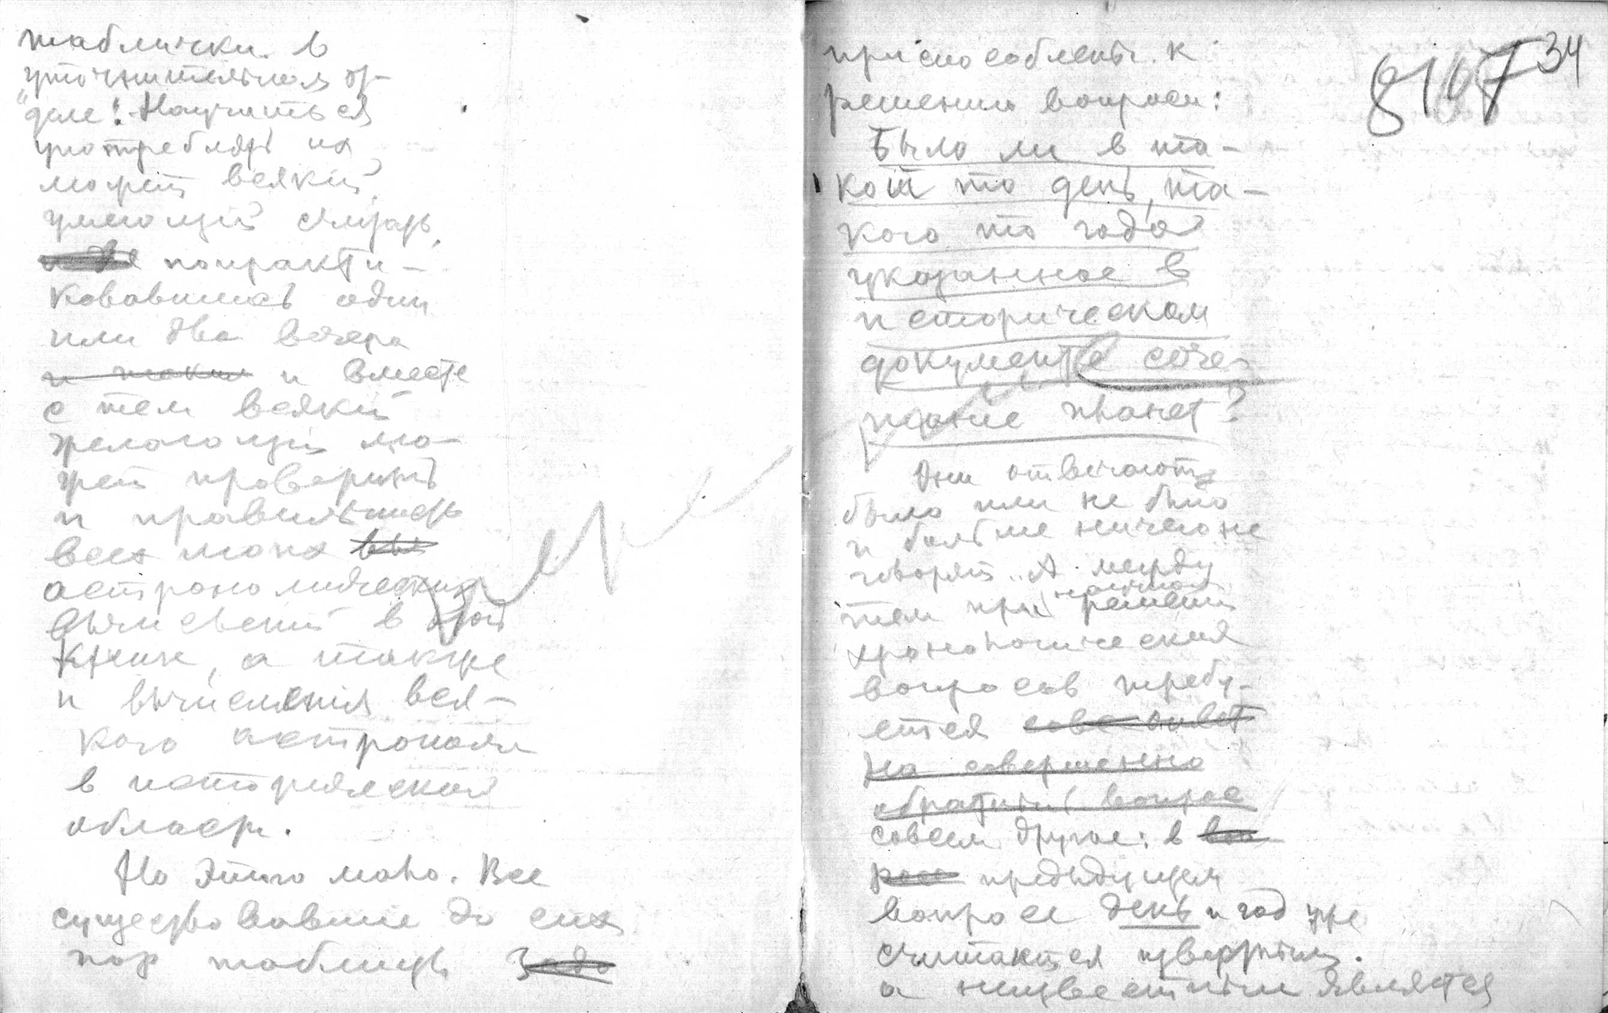 таблички в
уточнительном от-
деле! Научиться
употреблять их,
может всякий,
умеющий читать,
попракти-
ковавшись один
или два вечера
и вместе
с тем всякий
желающий мо-
жет проверить
и правильность
всех моих
астрономических
вычислений в этой
книге, а также
и вычисления вся-
кого астронома
в исторической
области.
Но этого мало. Все
существовавшие до сих
пор таблицы
34
8107
приспособлены к
решению вопроса:
Было ли в та-
кой то день, та-
кого то года
указанное в
историческом
документе соче-
тание планет?
Они отвечают:
было или не было
и больше ничего не
говорят. А между
тем при решении
хронологических
вопросов требу-
ется
на совершенно
обратный вопрос
совсем другое: в
предыдущем
вопросе день и год уже
считаются известными.
а неизвестным является